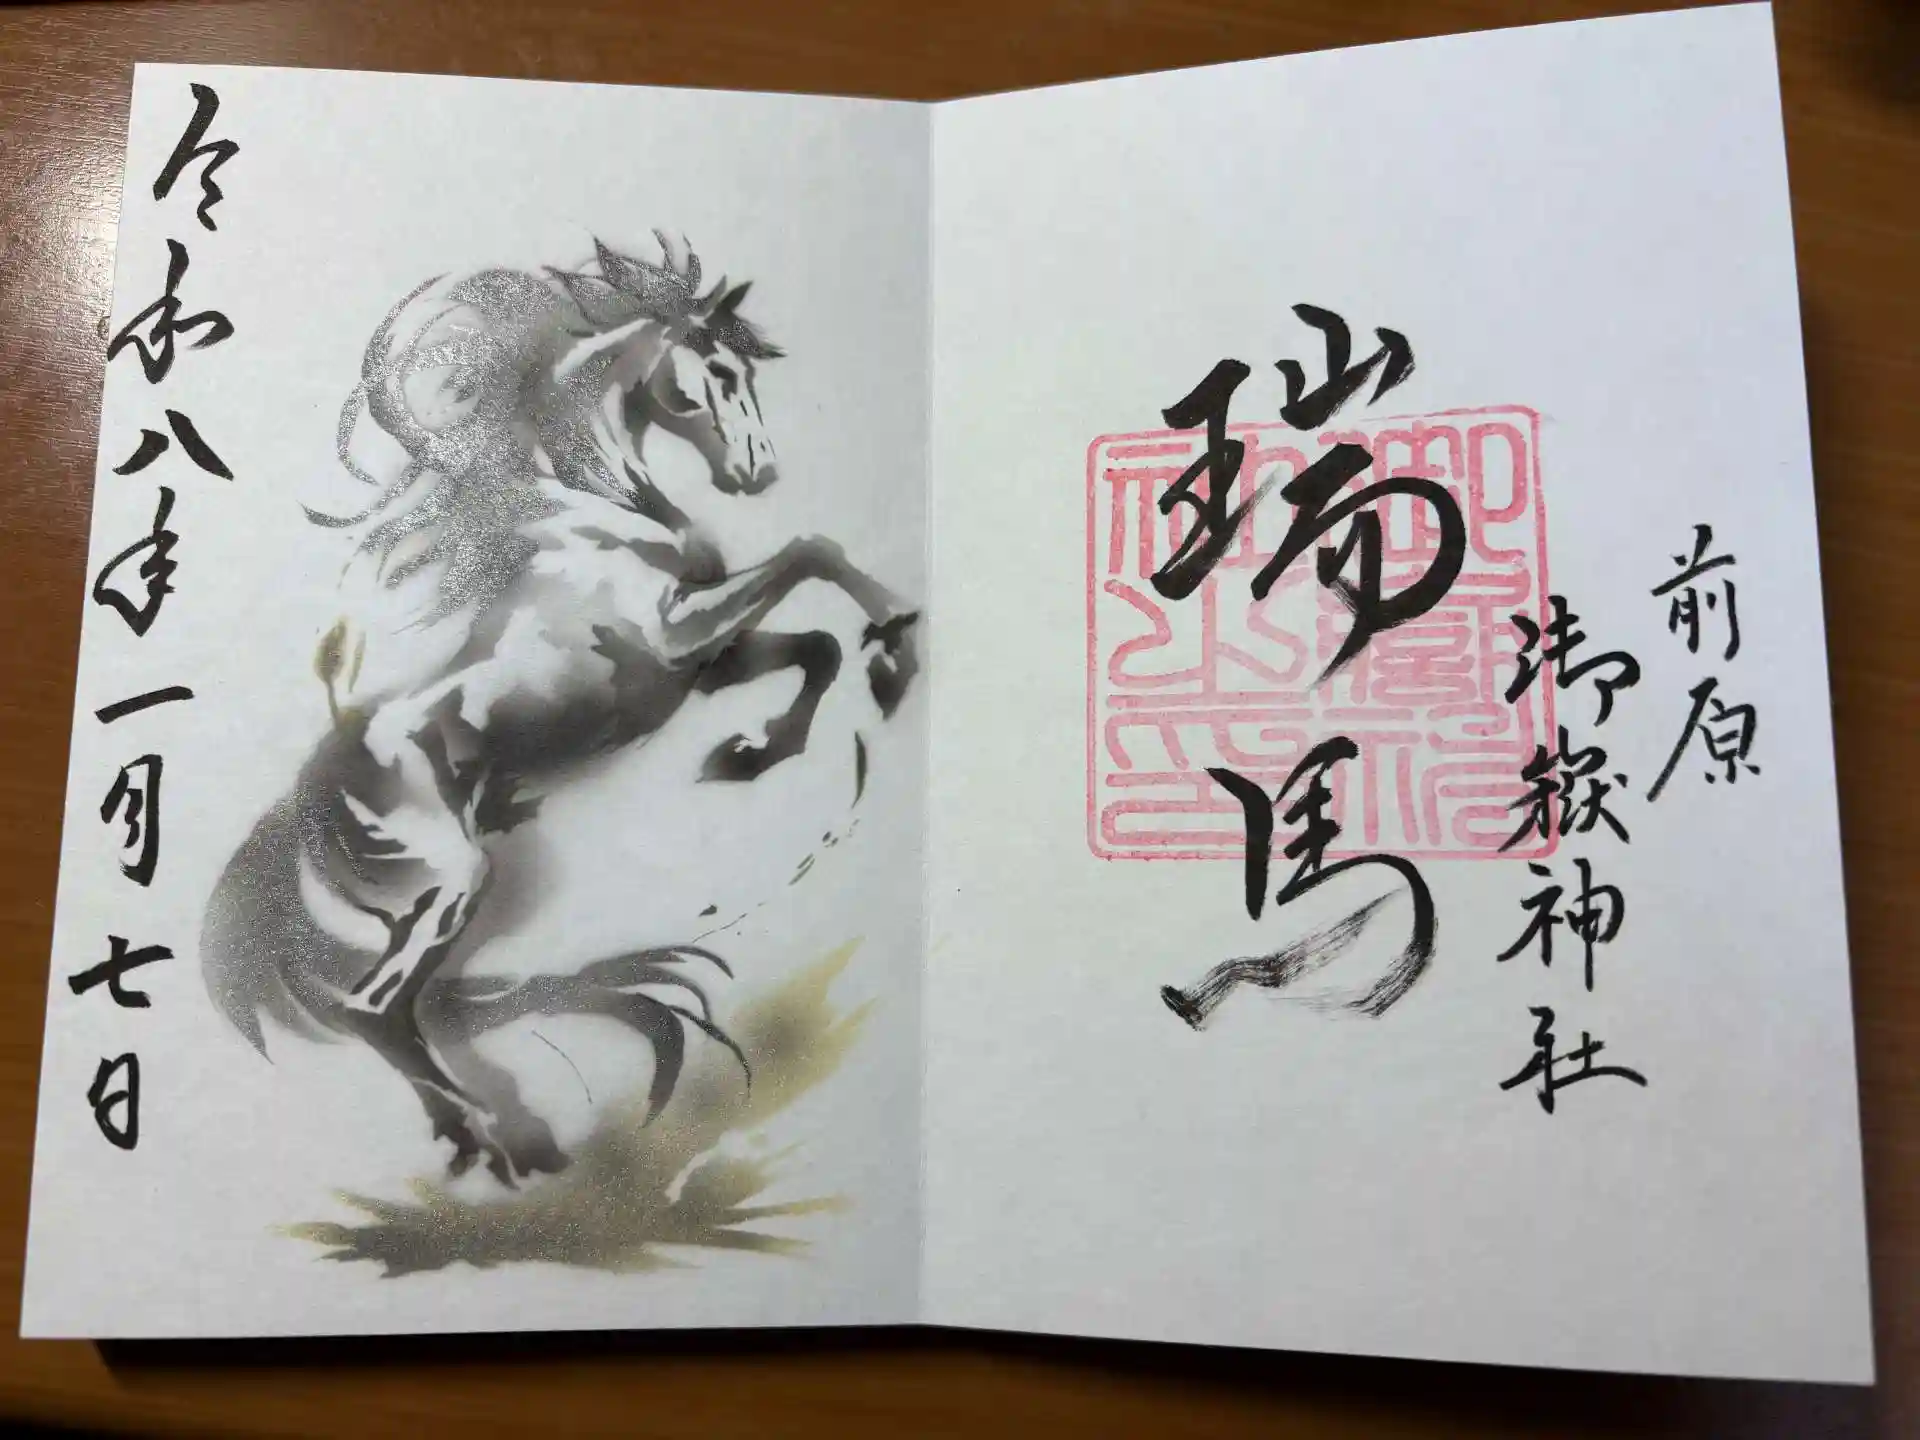 前原
御嶽神社
瑞馬
御嶽神社之印
令和八年一月七日